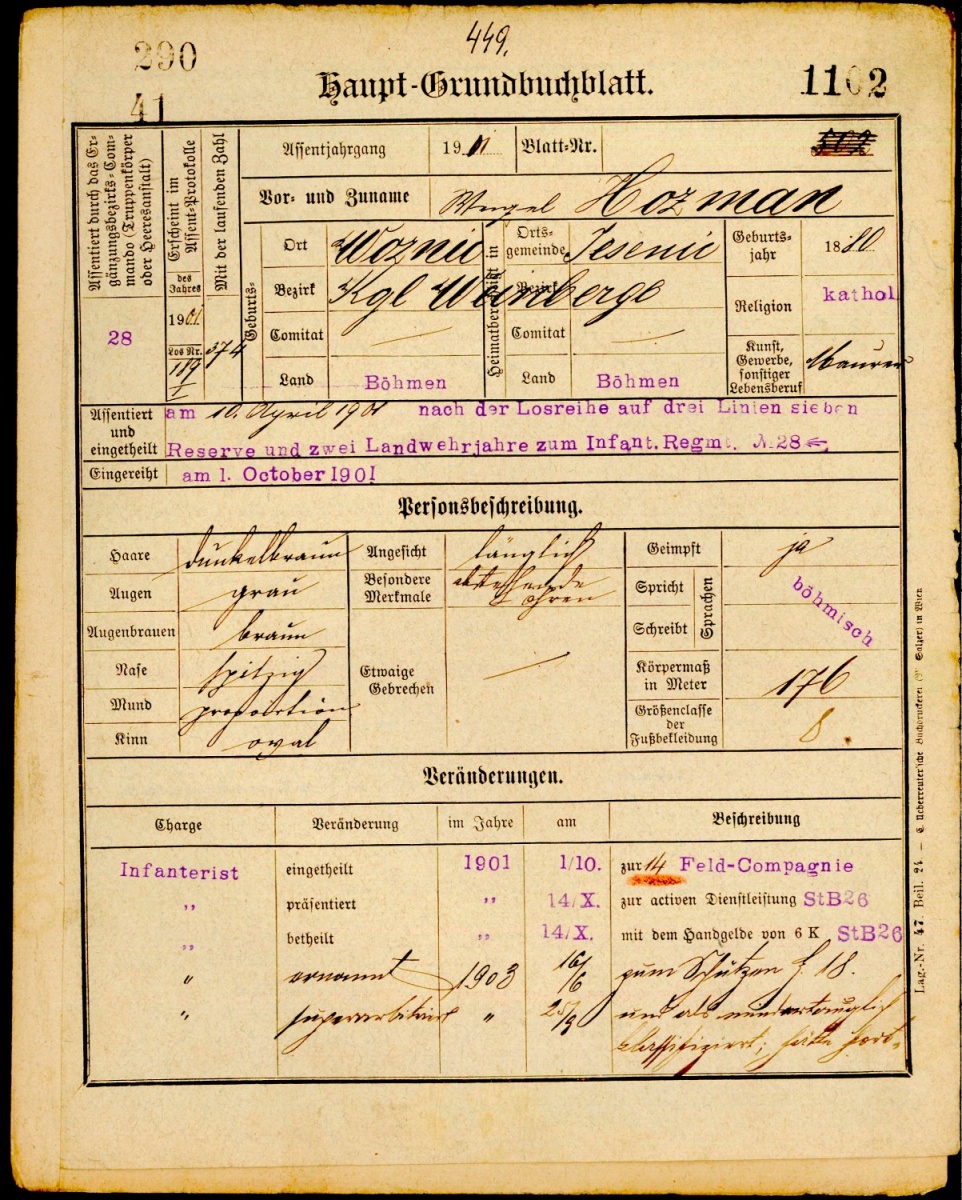 449.
290
Haupt-Grundbuchblatt.
1102
41
Assentiert durch das Ergänzungsbezirks-Commando (Truppenkörper oder Heeresanstalt)
28
Erscheint im Assent-Protokolle
des Jahres
1901
Los Nr.
119
I
Mit der laufenden Zahl
374
Assentjahrgang
1901
Blatt-Nr.
302
Vor- und Zuname
Hozman
Geburts-
Ort
Bezirk
Kgl Weinberge
Comitat
Land
Böhmen
Heimatberechtigt in
Ortsgemeinde
Bezirk
Comitat
Land
Böhmen
Geburtsjahr
1880
Religion
kathol
Kunst, Gewerbe, sonstiger Lebensberuf
Maurer
Assentiert und eingetheilt
am 10. April 1901 nach der Losreihe auf drei Linien sieben
Reserve und zwei Landwehrjahre zum Infant. Regmt. № 28
Eingereiht
am 1. October 1901
Personsbeschreibung.
Haare
dunkelbraun
Augen
grau
Augenbrauen
braun
Nase
spitzig
Mund
proportion
Kinn
oval
Angesicht
länglich
Besondere Merkmale
abstehende Ohren
Etwaige Gebrechen
Geimpft
ja
Spricht
Schreibt
Sprachen
böhmisch
Körpermaß in Meter
176
Größenclasse der Fußbekleidung
8
Veränderungen.
Charge
Veränderung
im Jahre
am
Beschreibung
Infanterist eingetheilt 1901 1/10. zur 14 Feld-Compagnie
„ präsentiert „ 14/X. zur activen Dienstleistung StB26
„ betheilt „ 14/X. mit dem Handgelde von 6 K StB26
„ ernannt 1903 16/6 zum Schützen § 18.
„ superarbitriert „ 25/9 und als mindertauglich
klassifiziert; hätte fort-
Lag.-Nr. 47. Beil. 24 — C. Ueberreuter'sche Buchdruckerei (M. Salzer) in Wien